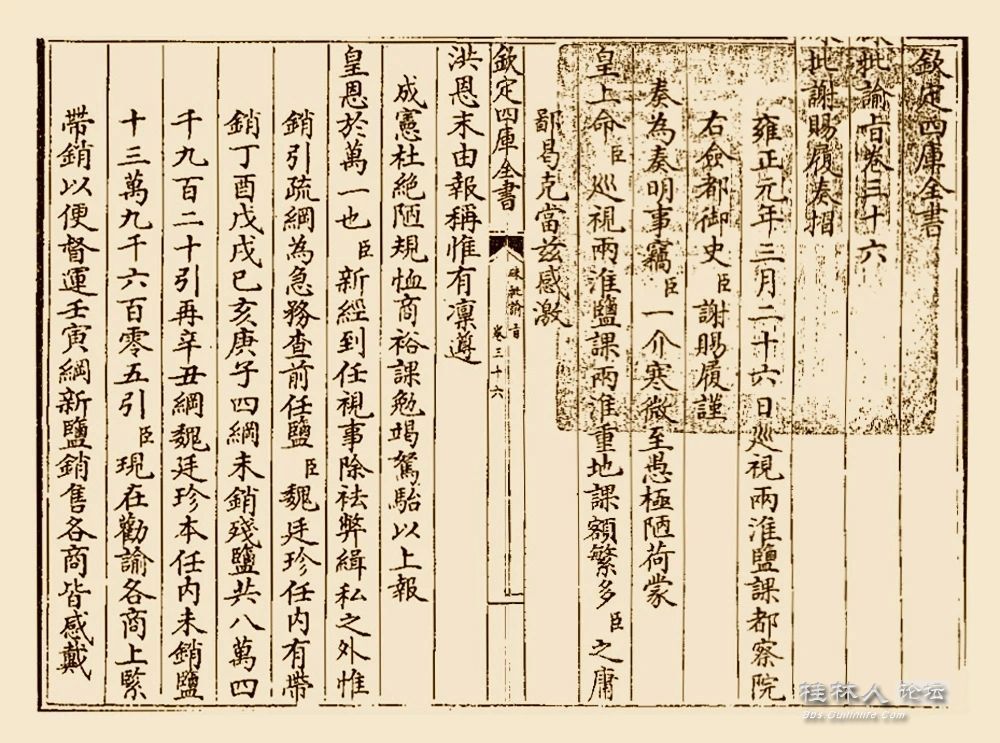 欽定四庫全書
硃批諭旨卷三十六
硃批謝賜履奏摺
雍正元年三月二十六日巡視兩淮鹽課都察院
右僉都御史臣謝賜履謹
奏為奏明事竊臣一介寒微至愚極陋荷蒙
皇上命臣巡視兩淮鹽課兩淮重地課額繁多臣之庸
鄙曷克當茲感激
欽定四庫全書
硃批諭旨
卷三十六
洪恩末由報稱惟有凛遵
成憲杜絶陋規恤商裕課勉竭駑駘以上報
皇恩於萬一也臣新經到任視事除祛弊緝私之外惟
銷引疏綱為急務查前任鹽臣魏廷珍任内有帶
銷丁酉戊戌己亥庚子四綱未銷殘鹽共八萬四
千九百二十引再辛丑綱魏廷珍本任内未銷鹽
十三萬九千六百零五引臣現在勸諭各商上緊
帶銷以便督運壬寅綱新鹽銷售各商皆感戴
桂林人论坛
Bbs.Guilinlife.Com